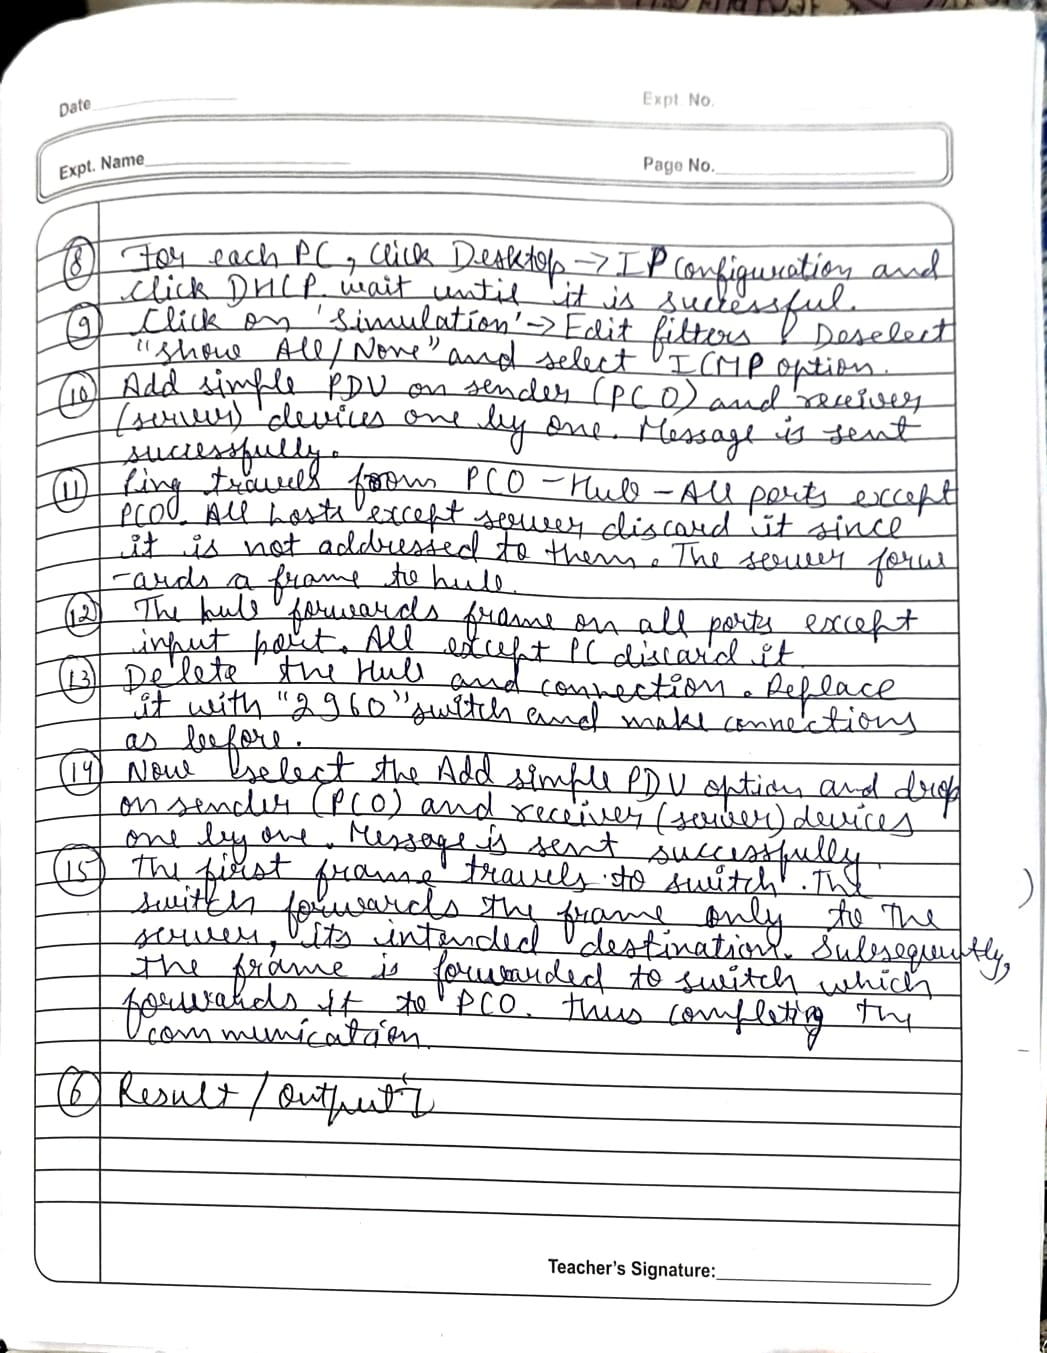 Date
Expt. No.
Expt. Name
Page No.
⑧ For each PC, Click Desktop → IP Configuration and
click DHCP. wait until it is successful.
⑨ Click on 'Simulation' → Edit filters Deselect
"Show All/None" and select ICMP option.
⑩ Add simple PDU on sender (PC0) and receiver
(server) devices one by one. Message is sent
successfully.
⑪ Ping travels from PC0 - Hub - All ports except
PC0. All hosts except server discard it since
it is not addressed to them. The server forw
-ards a frame to hub.
⑫ The hub forwards frame on all ports except
input port. All except PC discard it
⑬ Delete the Hub and connection. Replace
it with "2960" switch and make connections
as before.
⑭ Now select the Add simple PDU option and drop
on sender (PC0) and receiver (server) devices
one by one. Message is sent successfully.
⑮ The first frame travels to switch. The
switch forwards the frame only to the
server, its intended destination. Subsequently,
the frame is forwarded to switch which
forwards it to PC0. Thus completing the
communication.
⑥ Result / Output
Teacher's Signature: